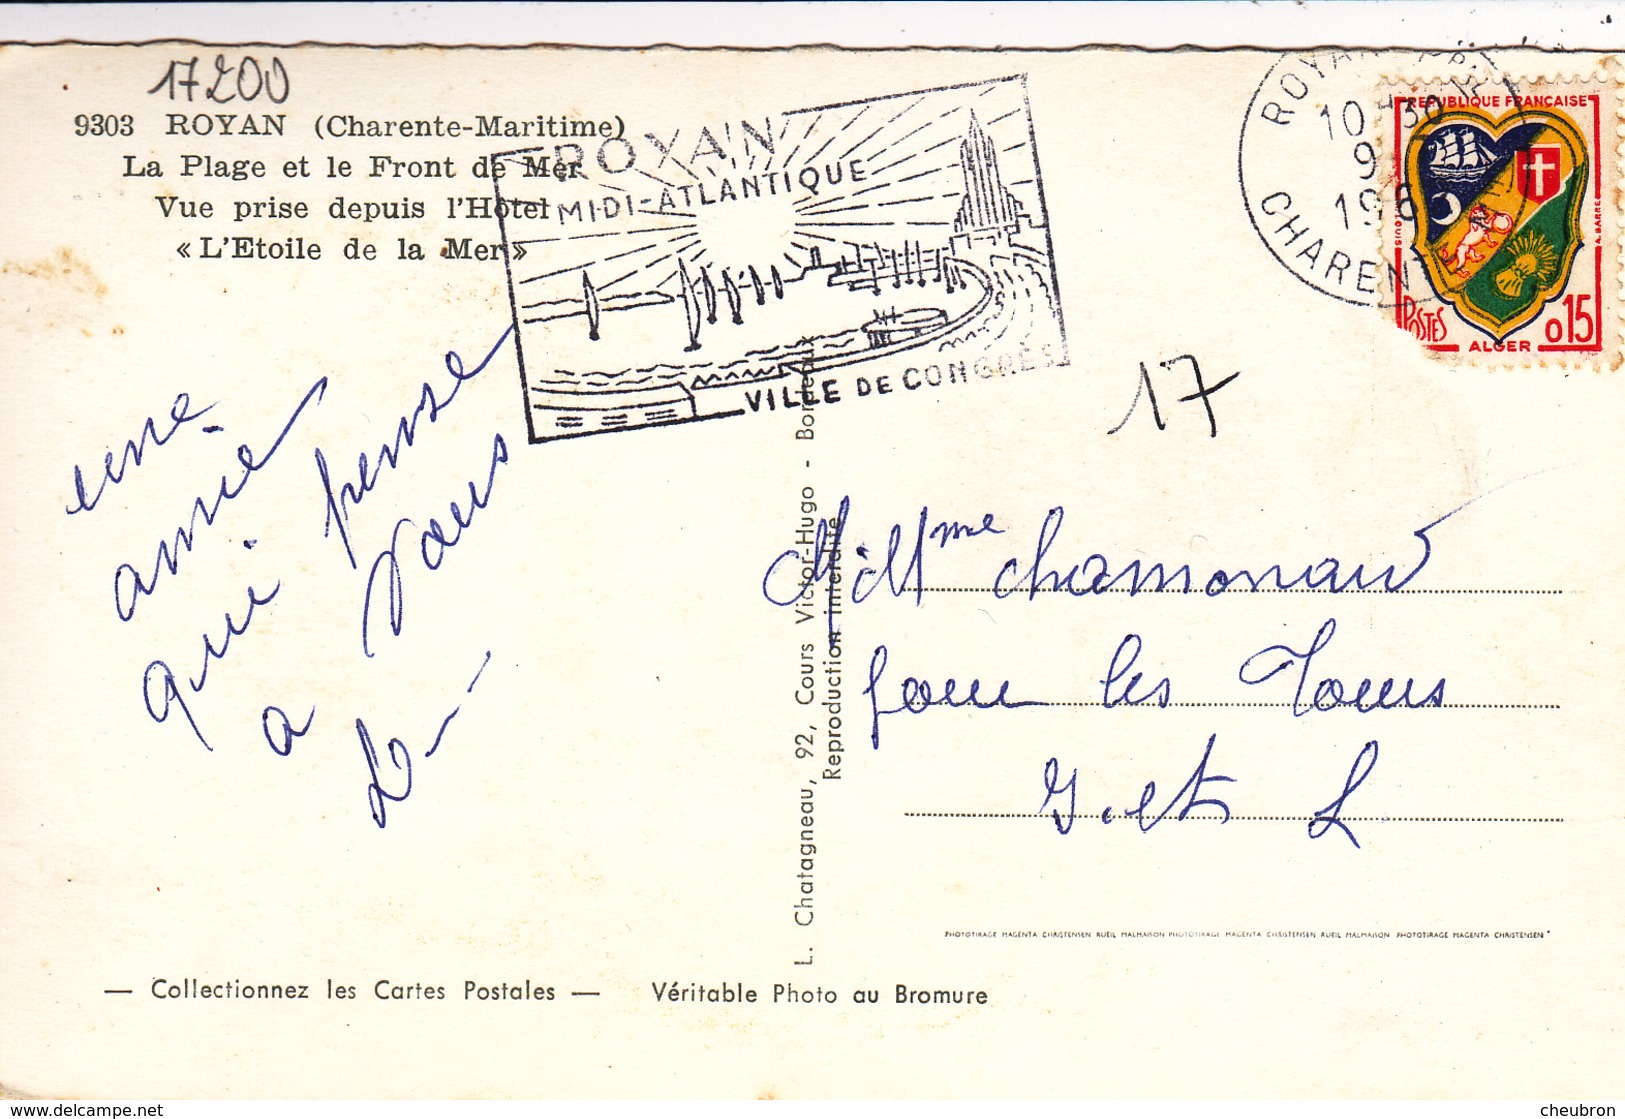 17200
9303 ROYAN (Charente-Maritime)
La Plage et le Front de Mer
Vue prise depuis l'Hôtel
« L'Etoile de la Mer »
ROYAN
MIDI-ATLANTIQUE
VILLE DE CONGRÈS
ROYAN
10 30
9
196
CHARENTE
REPUBLIQUE FRANÇAISE
POSTES
0,15
ALGER
17
une
amie
qui pense
a vous
Mme
les
G. et L
L. Chatagneau, 92, Cours Victor-Hugo - Bordeaux
Reproduction interdite
PHOTOTIRAGE MAGENTA CHRISTENSEN RUEIL MALMAISON PHOTOTIRAGE MAGENTA CHRISTENSEN RUEIL MALMAISON PHOTOTIRAGE MAGENTA CHRISTENSEN
— Collectionnez les Cartes Postales — Véritable Photo au Bromure
www.delcampe.net
cheubron